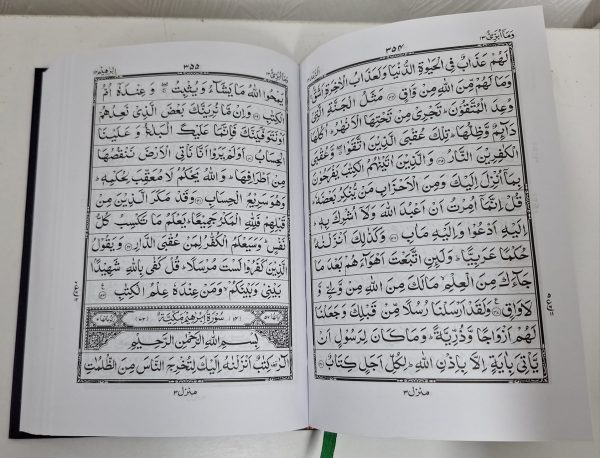 وما ابرئ ١٣
٣٥٤
لَهُمْ عَذَابٌ فِي الْحَيٰوةِ الدُّنْيَا وَلَعَذَابُ الْاٰخِرَةِ اَشَقُّ
وَمَا لَهُمْ مِّنَ اللّٰهِ مِنْ وَّاقٍ ﴿٣٤﴾ مَثَلُ الْجَنَّةِ الَّتِيْ
وُعِدَ الْمُتَّقُوْنَ ؕ تَجْرِيْ مِنْ تَحْتِهَا الْاَنْهٰرُ ؕ اُكُلُهَا
دَآئِمٌ وَّظِلُّهَا ؕ تِلْكَ عُقْبَى الَّذِيْنَ اتَّقَوْا ۖ وَّعُقْبَى
الْكٰفِرِيْنَ النَّارُ ﴿٣٥﴾ وَالَّذِيْنَ اٰتَيْنٰهُمُ الْكِتٰبَ يَفْرَحُوْنَ
بِمَآ اُنْزِلَ اِلَيْكَ وَمِنَ الْاَحْزَابِ مَنْ يُّنْكِرُ بَعْضَهٗ ؕ
قُلْ اِنَّمَآ اُمِرْتُ اَنْ اَعْبُدَ اللّٰهَ وَلَآ اُشْرِكَ بِهٖ ؕ
اِلَيْهِ اَدْعُوْا وَاِلَيْهِ مَاٰبِ ﴿٣٦﴾ وَكَذٰلِكَ اَنْزَلْنٰهُ
حُكْمًا عَرَبِيًّا ؕ وَلَئِنِ اتَّبَعْتَ اَهْوَآءَهُمْ بَعْدَ مَا
جَآءَكَ مِنَ الْعِلْمِ ۙ مَا لَكَ مِنَ اللّٰهِ مِنْ وَّلِيٍّ وَّ
لَا وَاقٍ ﴿٣٧﴾ وَلَقَدْ اَرْسَلْنَا رُسُلًا مِّنْ قَبْلِكَ وَجَعَلْنَا
لَهُمْ اَزْوَاجًا وَّذُرِّيَّةً ؕ وَمَا كَانَ لِرَسُوْلٍ اَنْ
يَّاْتِيَ بِاٰيَةٍ اِلَّا بِاِذْنِ اللّٰهِ ؕ لِكُلِّ اَجَلٍ كِتَابٌ ﴿٣٨﴾
منزل ٣
٣٥٥
يَمْحُوا اللّٰهُ مَا يَشَآءُ وَيُثْبِتُ ۖ وَعِنْدَهٗٓ اُمُّ
الْكِتٰبِ ﴿٣٩﴾ وَاِنْ مَّا نُرِيَنَّكَ بَعْضَ الَّذِيْ نَعِدُهُمْ
اَوْ نَتَوَفَّيَنَّكَ فَاِنَّمَا عَلَيْكَ الْبَلٰغُ وَعَلَيْنَا
الْحِسَابُ ﴿٤٠﴾ اَوَلَمْ يَرَوْا اَنَّا نَاْتِي الْاَرْضَ نَنْقُصُهَا
مِنْ اَطْرَافِهَا ؕ وَاللّٰهُ يَحْكُمُ لَا مُعَقِّبَ لِحُكْمِهٖ ؕ
وَهُوَ سَرِيْعُ الْحِسَابِ ﴿٤١﴾ وَقَدْ مَكَرَ الَّذِيْنَ مِنْ
قَبْلِهِمْ فَلِلّٰهِ الْمَكْرُ جَمِيْعًا ؕ يَعْلَمُ مَا تَكْسِبُ كُلُّ
نَفْسٍ ؕ وَسَيَعْلَمُ الْكُفّٰرُ لِمَنْ عُقْبَى الدَّارِ ﴿٤٢﴾ وَيَقُوْلُ
الَّذِيْنَ كَفَرُوْا لَسْتَ مُرْسَلًا ؕ قُلْ كَفٰى بِاللّٰهِ شَهِيْدًا
بَيْنِيْ وَبَيْنَكُمْ ۙ وَمَنْ عِنْدَهٗ عِلْمُ الْكِتٰبِ ﴿٤٣﴾
سُوْرَةُ اِبْرٰهِيْمَ مَكِّيَّةٌ
بِسْمِ اللّٰهِ الرَّحْمٰنِ الرَّحِيْمِ
الٓرٰ ۚ كِتٰبٌ اَنْزَلْنٰهُ اِلَيْكَ لِتُخْرِجَ النَّاسَ مِنَ الظُّلُمٰتِ
منزل ٣